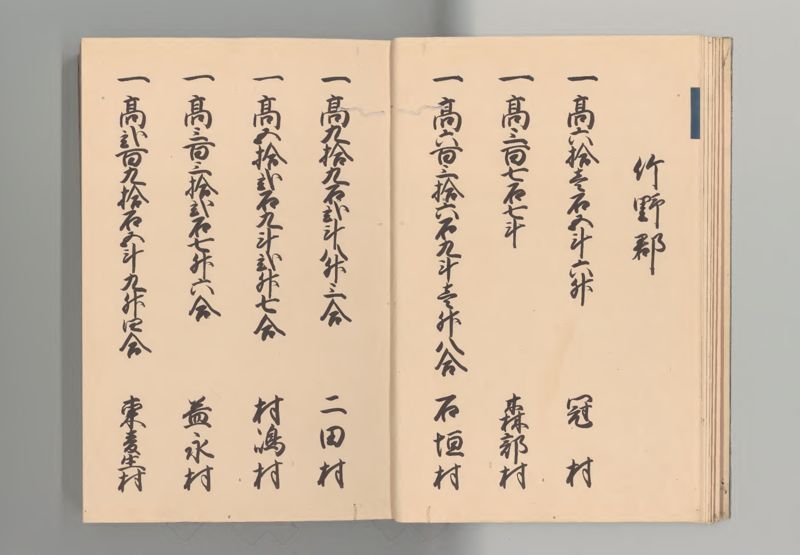 竹野郡
一 髙六拾壱石五斗六升 冠村
一 髙三百七石七斗 森部村
一 髙六百三拾六石九斗壱升八合 石垣村
一 髙九拾九石弐斗八升三合 二田村
一 髙五拾弐石九斗弐升七合 村嶋村
一 髙三百三拾弐石七升六合 益永村
一 髙弐百九拾石五斗九升四合 東麦生村